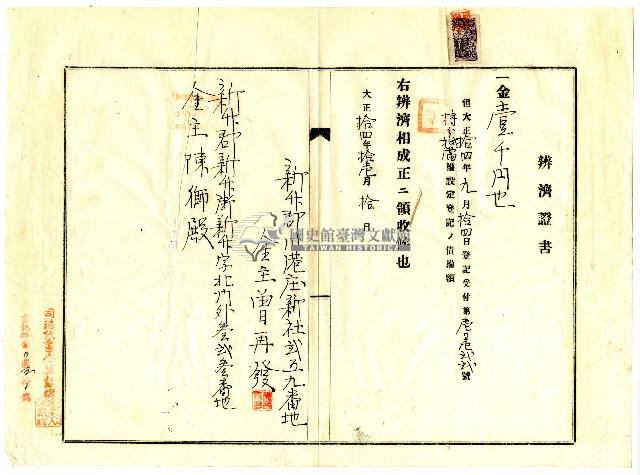 辨濟證書
一金壹千円也
但大正拾四年九月拾四日登記受付第壱〇壱弐弐號
抵當權設定登記ノ債權額
右辨濟相成正ニ領收候也
大正拾四年拾壱月拾日
新竹郡舊港庄新社弐五九番地
金主曾再發
新竹郡新竹街新竹字北門外叁弐叁番地
金主陳獅殿
國史館臺灣文獻館
TAIWAN HISTORICA